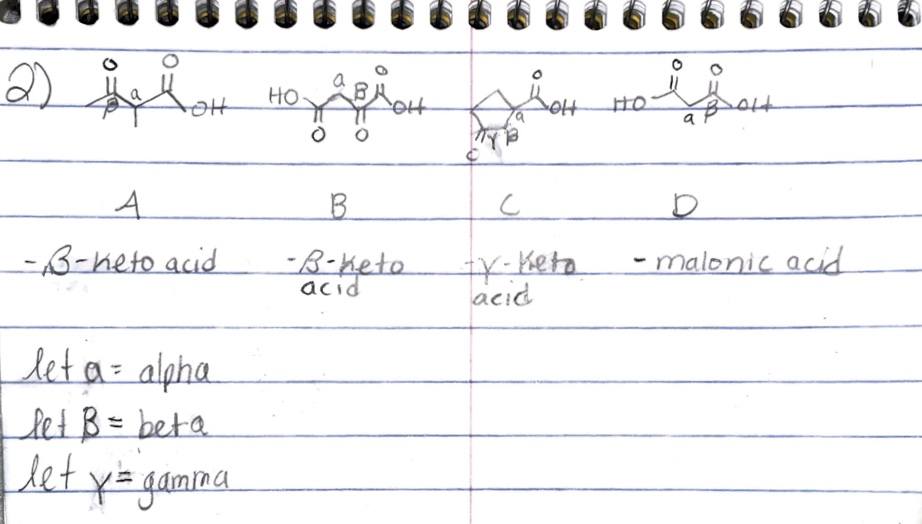 2)
O O O O O O
B a HO a B OH a OH HO a B OH
OH O O γ B
O
A B C D
-β-keto acid -β-keto acid -γ-keto acid - malonic acid
let a = alpha
let B = beta
let γ = gamma